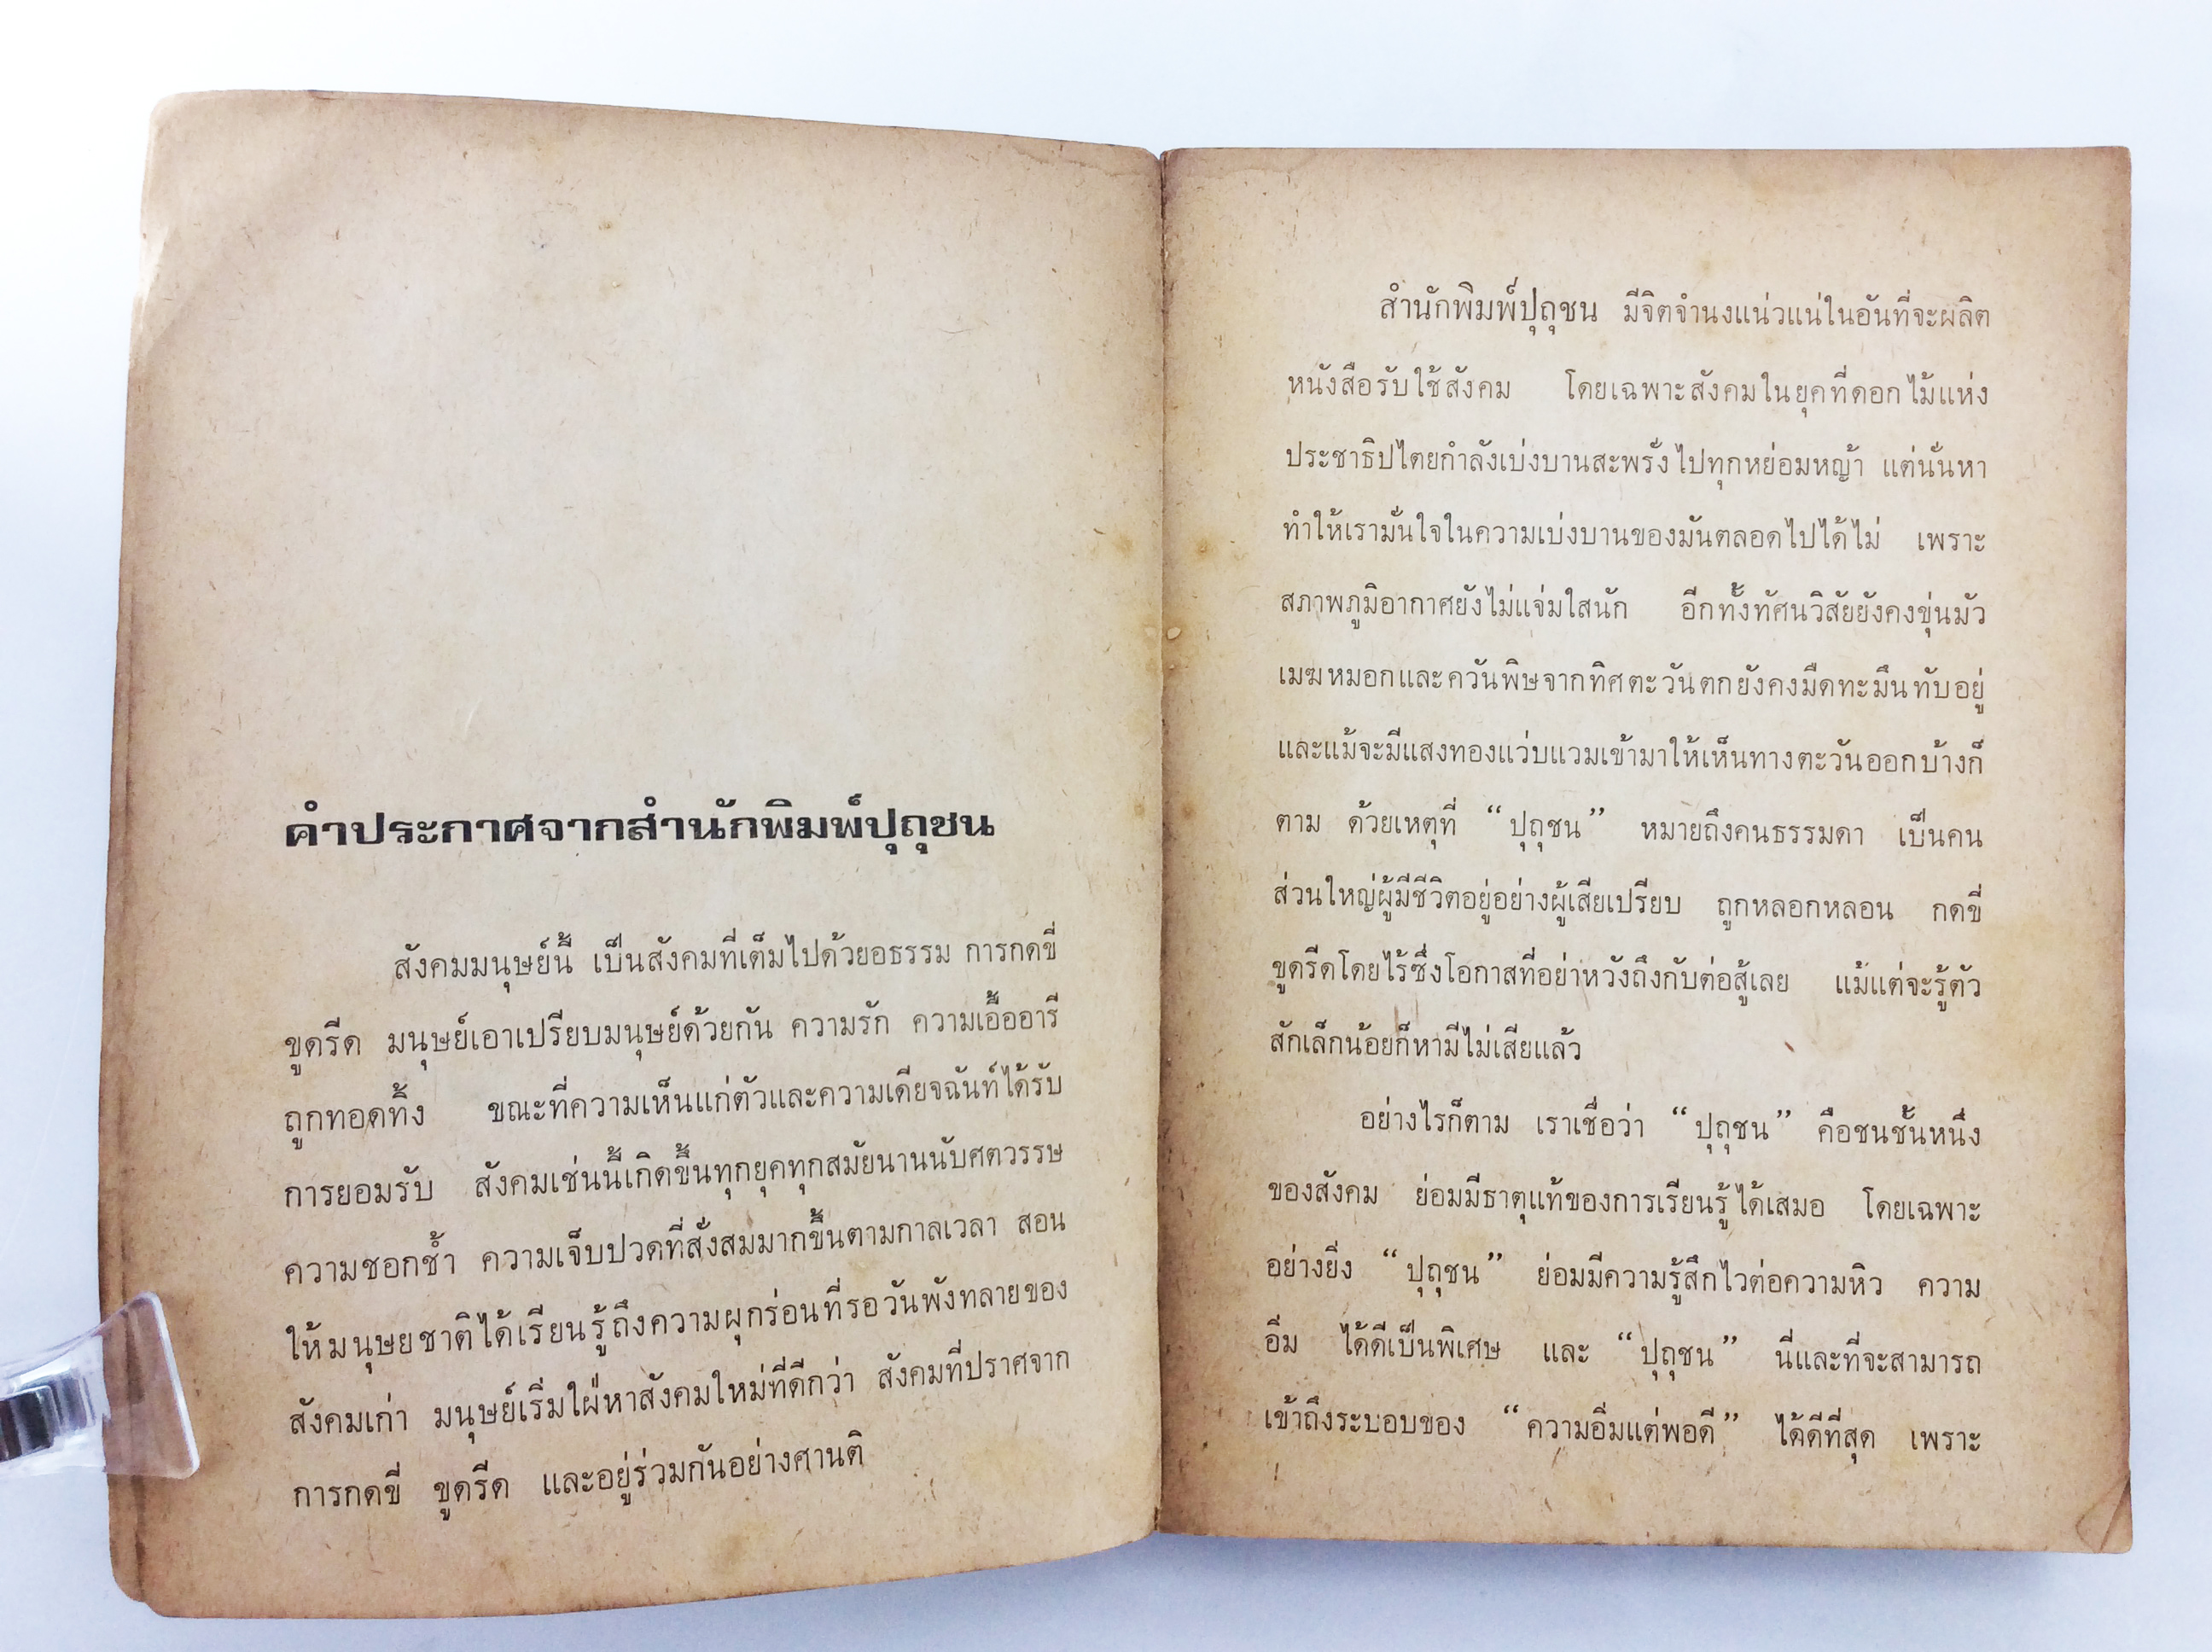 คำประกาศจากสำนักพิมพ์ปุถุชน
สังคมมนุษย์นี้ เป็นสังคมที่เต็มไปด้วยอธรรม การกดขี่
ขูดรีด มนุษย์เอาเปรียบมนุษย์ด้วยกัน ความรัก ความเอื้ออารี
ถูกทอดทิ้ง ขณะที่ความเห็นแก่ตัวและความเดียจฉันท์ได้รับ
การยอมรับ สังคมเช่นนี้เกิดขึ้นทุกยุคทุกสมัยนานนับศตวรรษ
ความชอกช้ำ ความเจ็บปวดที่สั่งสมมากขึ้นตามกาลเวลา สอน
ให้มนุษยชาติได้เรียนรู้ถึงความผุกร่อนที่รอวันพังทลายของ
สังคมเก่า มนุษย์เริ่มใฝ่หาสังคมใหม่ที่ดีกว่า สังคมที่ปราศจาก
การกดขี่ ขูดรีด และอยู่ร่วมกันอย่างศานติ
สำนักพิมพ์ปุถุชน มีจิตจำนงแน่วแน่ในอันที่จะผลิต
หนังสือรับใช้สังคม โดยเฉพาะสังคมในยุคที่ดอกไม้แห่ง
ประชาธิปไตยกำลังเบ่งบานสะพรั่งไปทุกหย่อมหญ้า แต่นั่นหา
ทำให้เรามั่นใจในความเบ่งบานของมันตลอดไปได้ไม่ เพราะ
สภาพภูมิอากาศยังไม่แจ่มใสนัก อีกทั้งทัศนวิสัยยังคงขุ่นมัว
เมฆหมอกและควันพิษจากทิศตะวันตกยังคงมืดทะมึนทับอยู่
และแม้จะมีแสงทองแว่บแวมเข้ามาให้เห็นทางตะวันออกบ้างก็
ตาม ด้วยเหตุที่ “ปุถุชน” หมายถึงคนธรรมดา เป็นคน
ส่วนใหญ่ผู้มีชีวิตอยู่อย่างผู้เสียเปรียบ ถูกหลอกหลอน กดขี่
ขูดรีดโดยไร้ซึ่งโอกาสที่อย่าหวังถึงกับต่อสู้เลย แม้แต่จะรู้ตัว
สักเล็กน้อยก็หามีไม่เสียแล้ว
อย่างไรก็ตาม เราเชื่อว่า “ปุถุชน” คือชนชั้นหนึ่ง
ของสังคม ย่อมมีธาตุแท้ของการเรียนรู้ได้เสมอ โดยเฉพาะ
อย่างยิ่ง “ปุถุชน” ย่อมมีความรู้สึกไวต่อความหิว ความ
อิ่ม ได้ดีเป็นพิเศษ และ “ปุถุชน” นี่และที่จะสามารถ
เข้าถึงระบอบของ “ความอิ่มแต่พอดี” ได้ดีที่สุด เพราะ